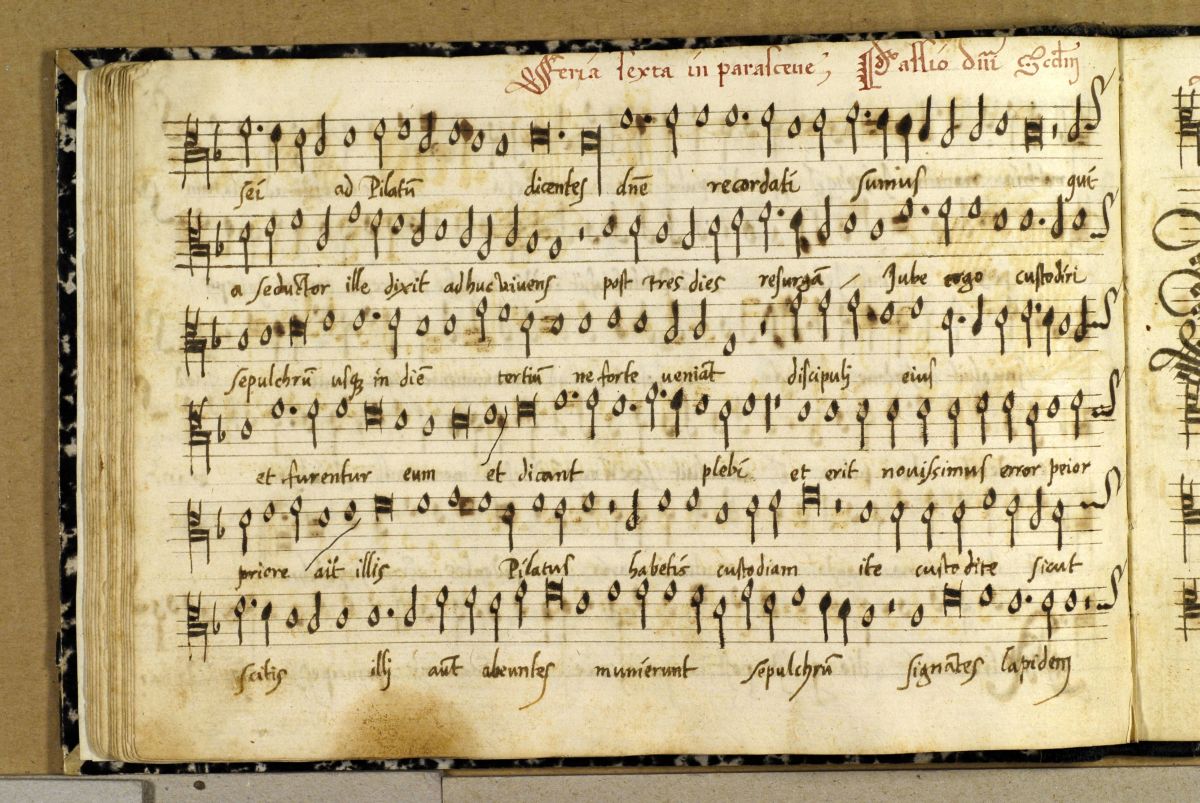 Feria sexta in parasceve, Passio dnī Scdm̄
sei ad Pilatū dicentes dnē recordati sumus qui
a seductor ille dixit adhuc vivens post tres dies resurgā Jube ergo custodiri
sepulchrū usqȝ in diē tertiū ne forte veniāt discipulj eius
et furentur eum et dicant plebi et erit novissimus error peior
priore ait illis Pilatus habetis custodiam ite custodite sicut
scitis illj aūt abeuntes munierunt sepulchrū signātes lapidem